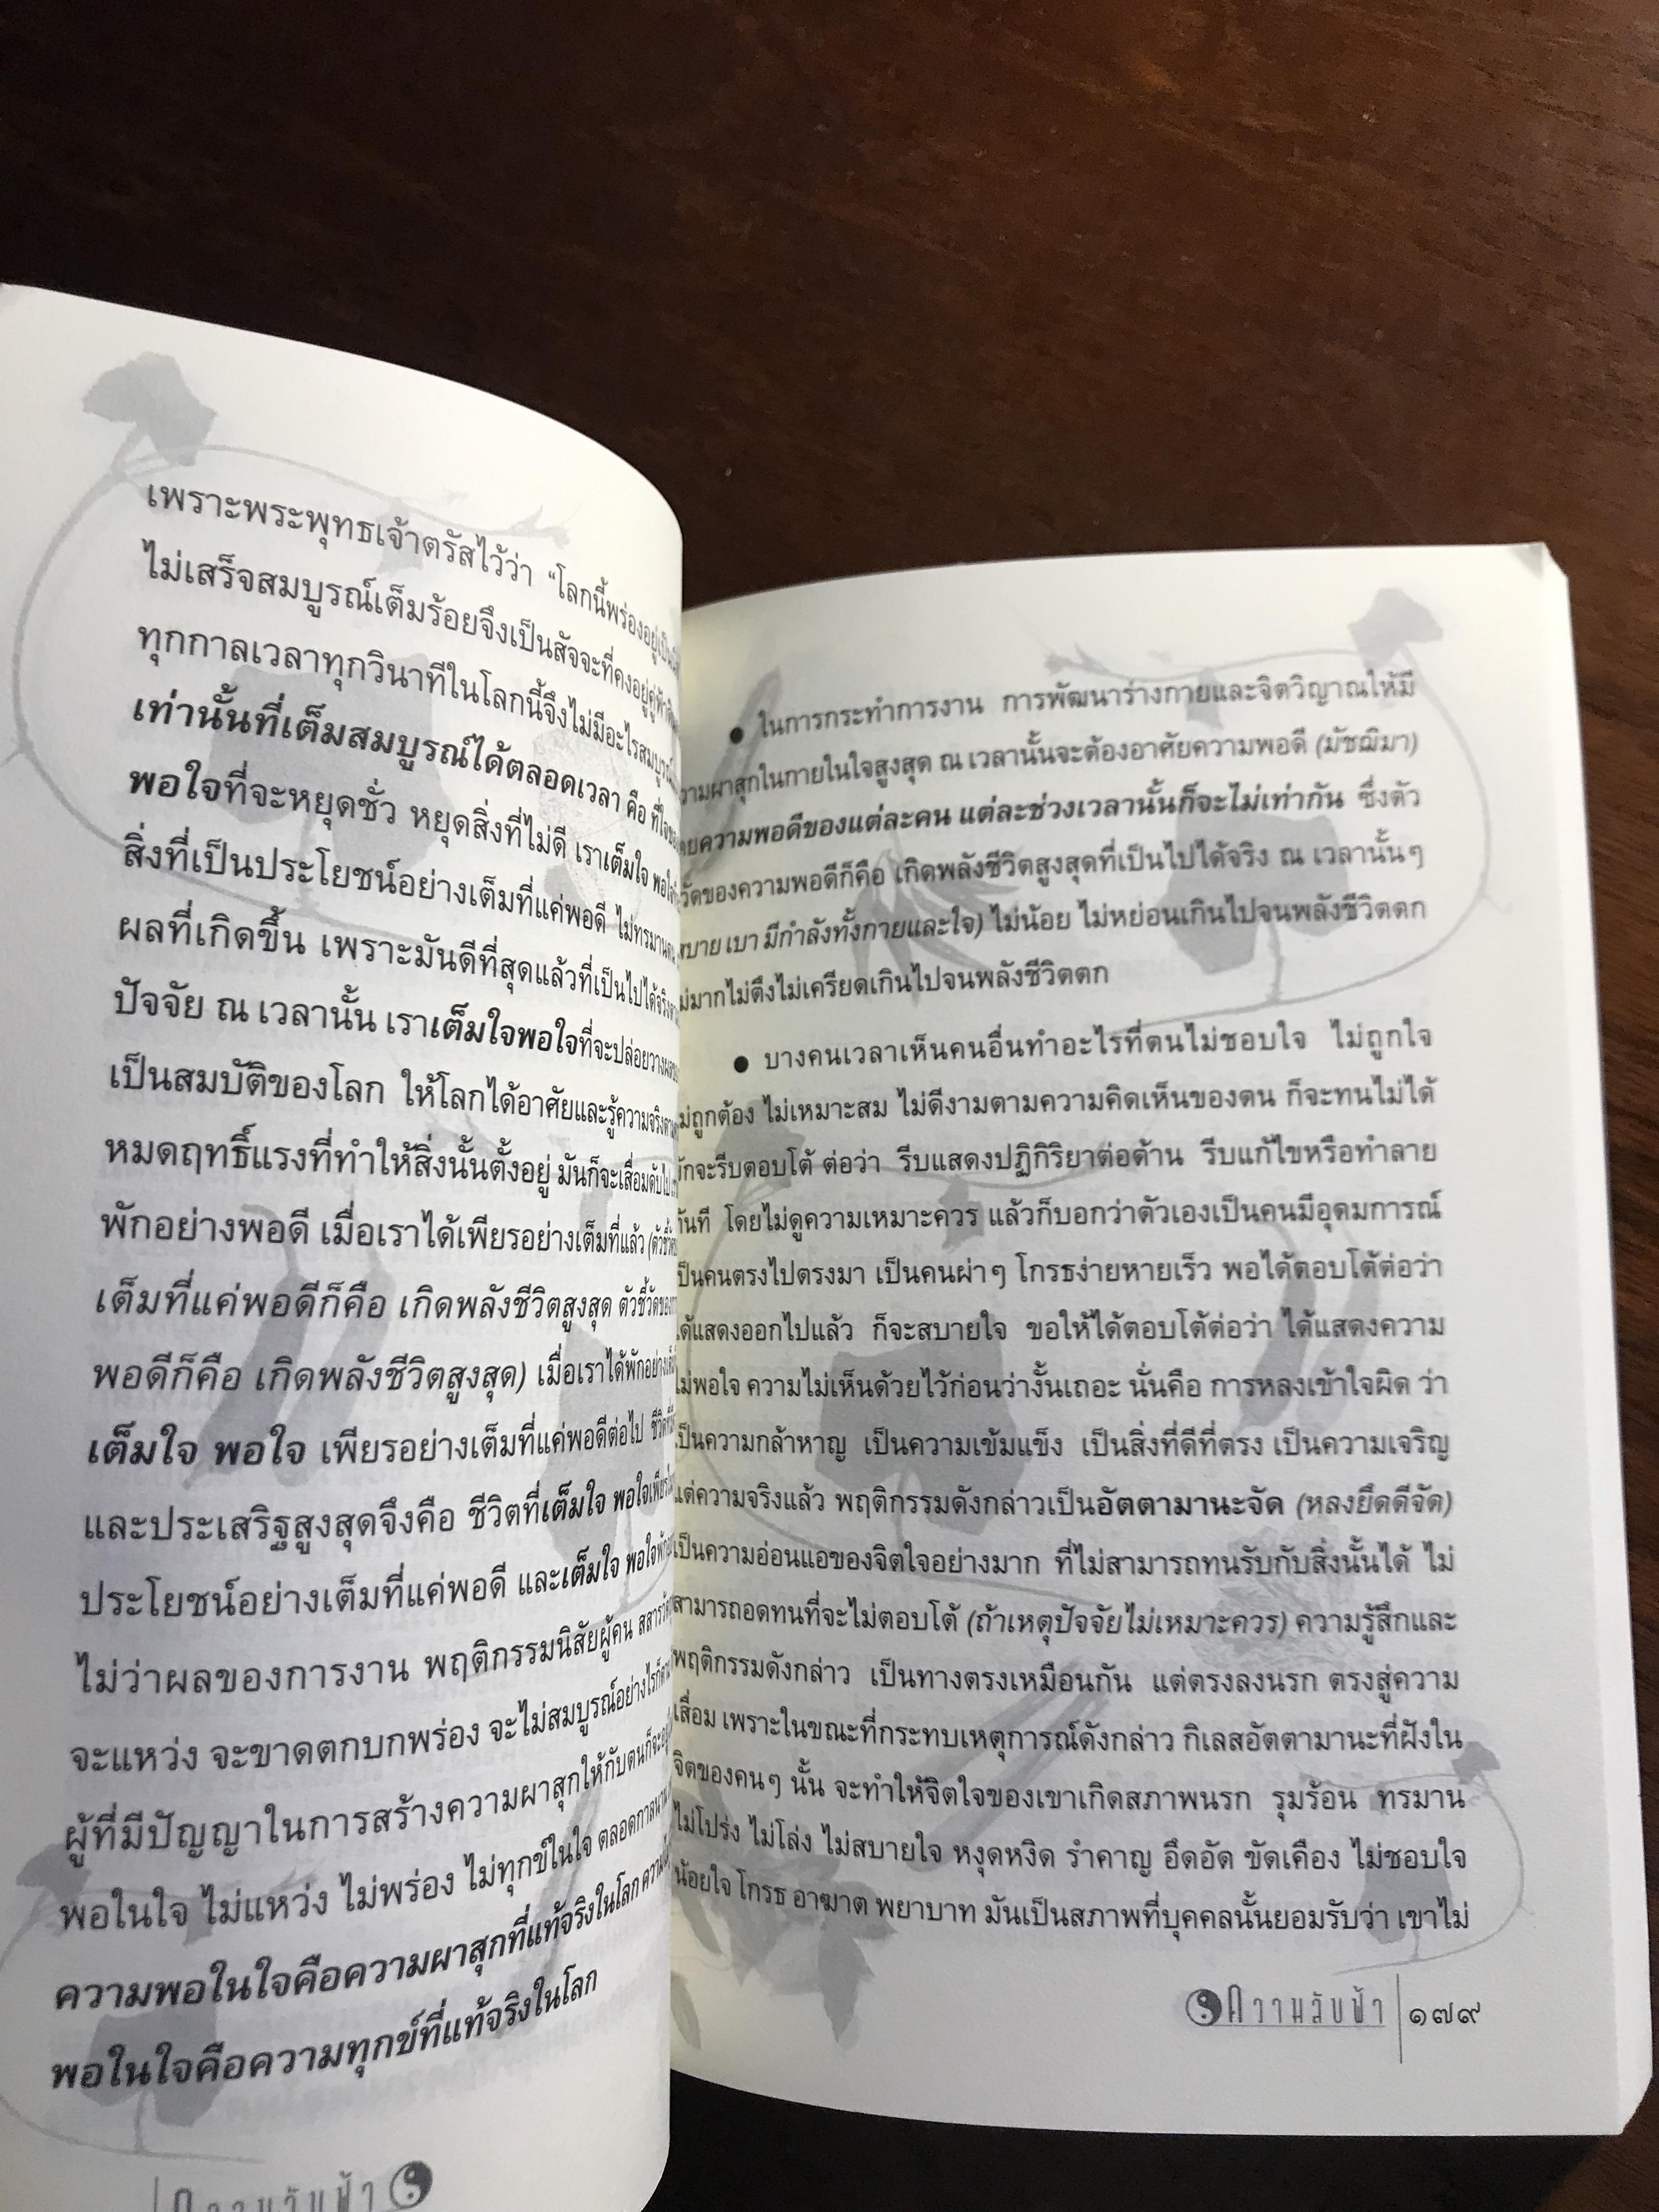 เพราะพระพุทธเจ้าตรัสไว้ว่า “โลกนี้พร่องอยู่เป็น
ไม่เสร็จสมบูรณ์เต็มร้อยจึงเป็นสัจจะที่คงอยู่คู่ฟ้า
ทุกกาลเวลาทุกวินาทีในโลกนี้จึงไม่มีอะไรสมบูรณ์
เท่านั้นที่เต็มสมบูรณ์ได้ตลอดเวลา คือ ที่ใจ
พอใจที่จะหยุดชั่ว หยุดสิ่งที่ไม่ดี เราเต็มใจ พอใจ
สิ่งที่เป็นประโยชน์อย่างเต็มที่แค่พอดี ไม่ทรมาน
ผลที่เกิดขึ้น เพราะมันดีที่สุดแล้วที่เป็นไปได้จริง
ปัจจัย ณ เวลานั้น เราเต็มใจพอใจที่จะปล่อยวาง
เป็นสมบัติของโลก ให้โลกได้อาศัยและรู้ความจริง
หมดฤทธิ์แรงที่ทำให้สิ่งนั้นตั้งอยู่ มันก็จะเสื่อมดับไป
พักอย่างพอดี เมื่อเราได้เพียรอย่างเต็มที่แล้ว
เต็มที่แค่พอดีก็คือ เกิดพลังชีวิตสูงสุด ตัวชี้วัดของ
พอดีก็คือ เกิดพลังชีวิตสูงสุด) เมื่อเราได้พักอย่าง
เต็มใจ พอใจ เพียรอย่างเต็มที่แค่พอดีต่อไป
และประเสริฐสูงสุดจึงคือ ชีวิตที่เต็มใจ พอใจ
ประโยชน์อย่างเต็มที่แค่พอดี และเต็มใจ พอใจ
ไม่ว่าผลของการงาน พฤติกรรมนิสัยผู้คน
จะแหว่ง จะขาดตกบกพร่อง จะไม่สมบูรณ์อย่างไรก็ตาม
ผู้ที่มีปัญญาในการสร้างความผาสุกให้กับตนก็จะ
พอในใจ ไม่แหว่ง ไม่พร่อง ไม่ทุกข์ในใจ ตลอดกาลนาน
ความพอในใจคือความผาสุกที่แท้จริงในโลก
พอในใจคือความทุกข์ที่แท้จริงในโลก
ความลับฟ้า
● ในการกระทำการงาน การพัฒนาร่างกายและจิตวิญาณให้มี
วามผาสุกในกายในใจสูงสุด ณ เวลานั้นจะต้องอาศัยความพอดี (มัชฌิมา)
ดยความพอดีของแต่ละคน แต่ละช่วงเวลานั้นก็จะไม่เท่ากัน ซึ่งตัว
วัดของความพอดีก็คือ เกิดพลังชีวิตสูงสุดที่เป็นไปได้จริง ณ เวลานั้นๆ
บาย เบา มีกำลังทั้งกายและใจ) ไม่น้อย ไม่หย่อนเกินไปจนพลังชีวิตตก
ม่มากไม่ตึงไม่เครียดเกินไปจนพลังชีวิตตก
● บางคนเวลาเห็นคนอื่นทำอะไรที่ตนไม่ชอบใจ ไม่ถูกใจ
ม่ถูกต้อง ไม่เหมาะสม ไม่ดีงามตามความคิดเห็นของตน ก็จะทนไม่ได้
ักจะรีบตอบโต้ ต่อว่า รีบแสดงปฏิกิริยาต่อต้าน รีบแก้ไขหรือทำลาย
ทันที โดยไม่ดูความเหมาะควร แล้วก็บอกว่าตัวเองเป็นคนมีอุดมการณ์
เป็นคนตรงไปตรงมา เป็นคนผ่าๆ โกรธง่ายหายเร็ว พอได้ตอบโต้ต่อว่า
ได้แสดงออกไปแล้ว ก็จะสบายใจ ขอให้ได้ตอบโต้ต่อว่า ได้แสดงความ
ไม่พอใจ ความไม่เห็นด้วยไว้ก่อนว่างั้นเถอะ นั่นคือ การหลงเข้าใจผิด ว่า
เป็นความกล้าหาญ เป็นความเข้มแข็ง เป็นสิ่งที่ดีที่ตรง เป็นความเจริญ
แต่ความจริงแล้ว พฤติกรรมดังกล่าวเป็นอัตตามานะจัด (หลงยึดดีจัด)
เป็นความอ่อนแอของจิตใจอย่างมาก ที่ไม่สามารถทนรับกับสิ่งนั้นได้ ไม่
สามารถอดทนที่จะไม่ตอบโต้ (ถ้าเหตุปัจจัยไม่เหมาะควร) ความรู้สึกและ
พฤติกรรมดังกล่าว เป็นทางตรงเหมือนกัน แต่ตรงลงนรก ตรงสู่ความ
เสื่อม เพราะในขณะที่กระทบเหตุการณ์ดังกล่าว กิเลสอัตตามานะที่ฝังใน
จิตของคนๆ นั้น จะทำให้จิตใจของเขาเกิดสภาพนรก รุมร้อน ทรมาน
ไม่โปร่ง ไม่โล่ง ไม่สบายใจ หงุดหงิด รำคาญ อึดอัด ขัดเคือง ไม่ชอบใจ
น้อยใจ โกรธ อาฆาต พยาบาท มันเป็นสภาพที่บุคคลนั้นยอมรับว่า เขาไม่
ความลับฟ้า ๑๗๙